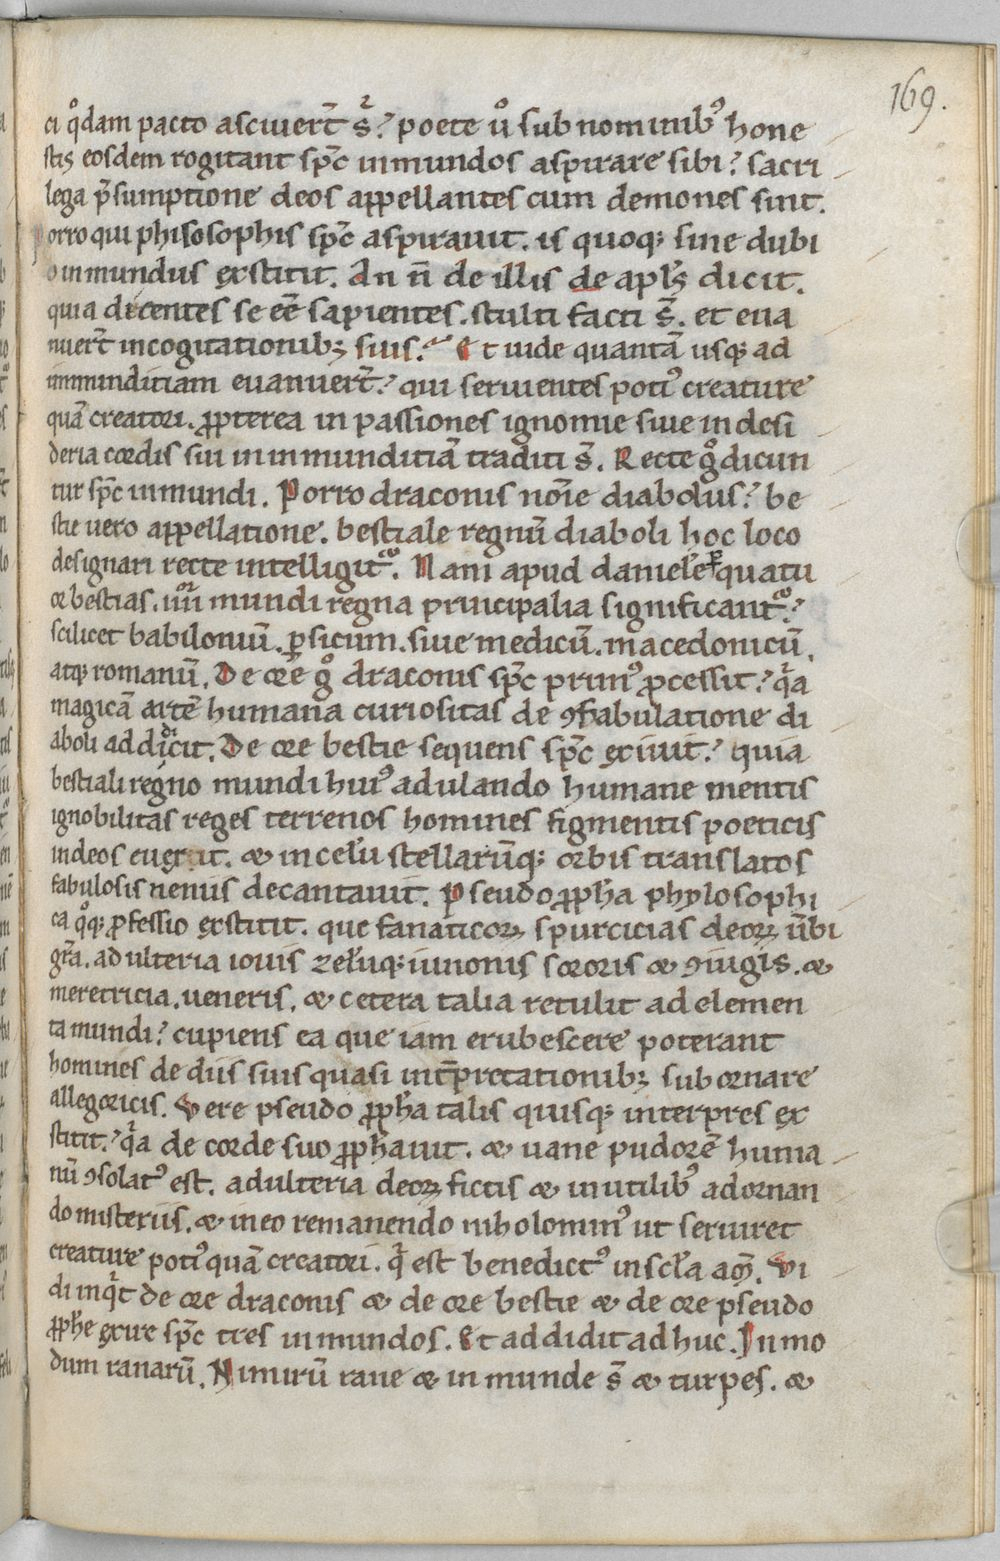 169.
ci q̊dam pacto asciuer̄t s̄? poete ů sub nominib⁹ hone
stis eosdem rogitant sp̄c inmundos aspirare sibi? sacri
lega p̄sumptione deos appellantes cum demones sint.
Porro qui phisosophis sp̄c aspirauit. is quoq; sine dubi
o inmundus exstitit. An n̄ de illis de apl̄s dicit.
quia dicentes se eē sapientes. stulti facti s̄. et eua
nuer̄t in cogitationib; suis. Et uide quantā usq; ad
inmunditiam euanuer̄t? qui seruientes poti⁹ creature
quā creatori. ꝓpterea in passiones ignomie siue in desi
deria cordis sui in inmunditiā traditi s̄. Recte g̊ dicun
tur sp̄c inmundi. Porro draconis noīe diabolus? be
stie uero appellatione. bestiale regnū diaboli hoc loco
designari recte intelligit᷑. Nam apud daniele quatu
or bestias. iiiior mundi regna principalia significant᷑?
scilicet babilonuū. ꝑsicum. siue medicū. macedonicū.
atq; romanū. De ore g̊ draconis sp̄c prim⁹ ꝓcessit? q̄a
magicā artē humana curiositas de ꝯfabulatione di
aboli addidicit. De ore bestie sequens sp̄c exiuit? quia
bestiali regno mundi hui⁹ adulando humane mentis
ignobilitas reges terrenos homines figmentis poeticis
in deos euexit. & in celū stellarūq; orbis translatos
fabulosis neniis decantauit. Pseudo ꝓph̄a phylosophi
ca q̊q; ꝓfessio exstitit. que fanaticoꝝ spurcicias deoꝝ ūbi
gr̄a. adulteria iouis zelūq; iunonis sororis & ꝯiugis. &
meretricia. ueneris. & cetera talia retulit ad elemen
ta mundi? cupiens ea que iam erubescere poterant
homines de diis suis quasi int̄pretationib; subornare
allegoricis. Vere pseudo ꝓph̄a talis quisq; interpres ex
stitit? q̄a de corde suo ꝓph̄auit. & uane pudorē huma
nū ꝯsolat⁹ est. adulteria deoꝝ fictis & inutilib⁹ adornan
do misteriis. & in eo remanendo niholomin⁹ ut seruiret
creature poti⁹ quā creatori. q̄ est benedict⁹ in scl̄a am̄. Vi
di inq̄t de ore draconis & de ore bestie & de ore pseudo
ꝓph̄e exire sp̄c tres inmundos. Et addidit adhuc. In mo
dum ranarū. Nimirū rane & inmunde s̄ & turpes. &